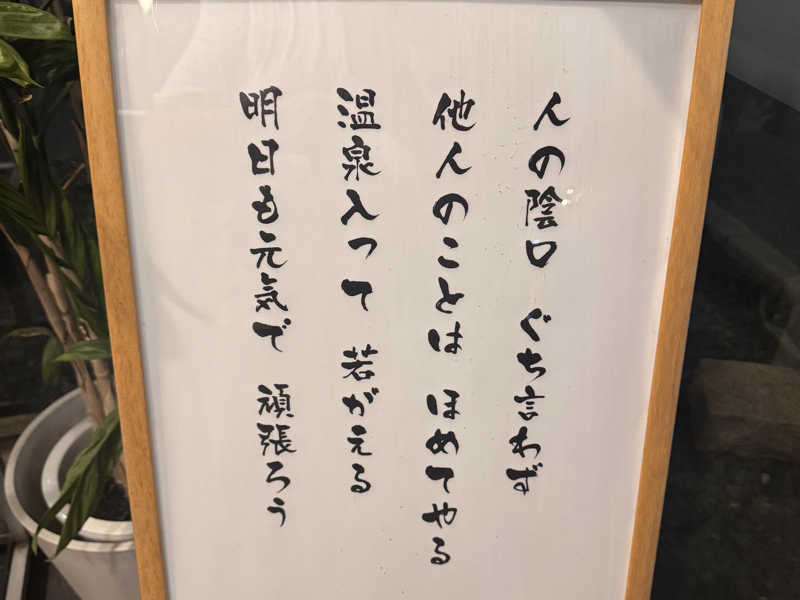 人の陰口 ぐち言わず
他人のことは ほめてやる
温泉入って 若がえる
明日も元気で 頑張ろう